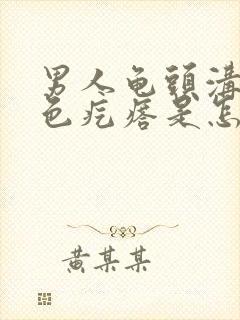 男人龟頭溝
色疙瘩是怎
黄某某